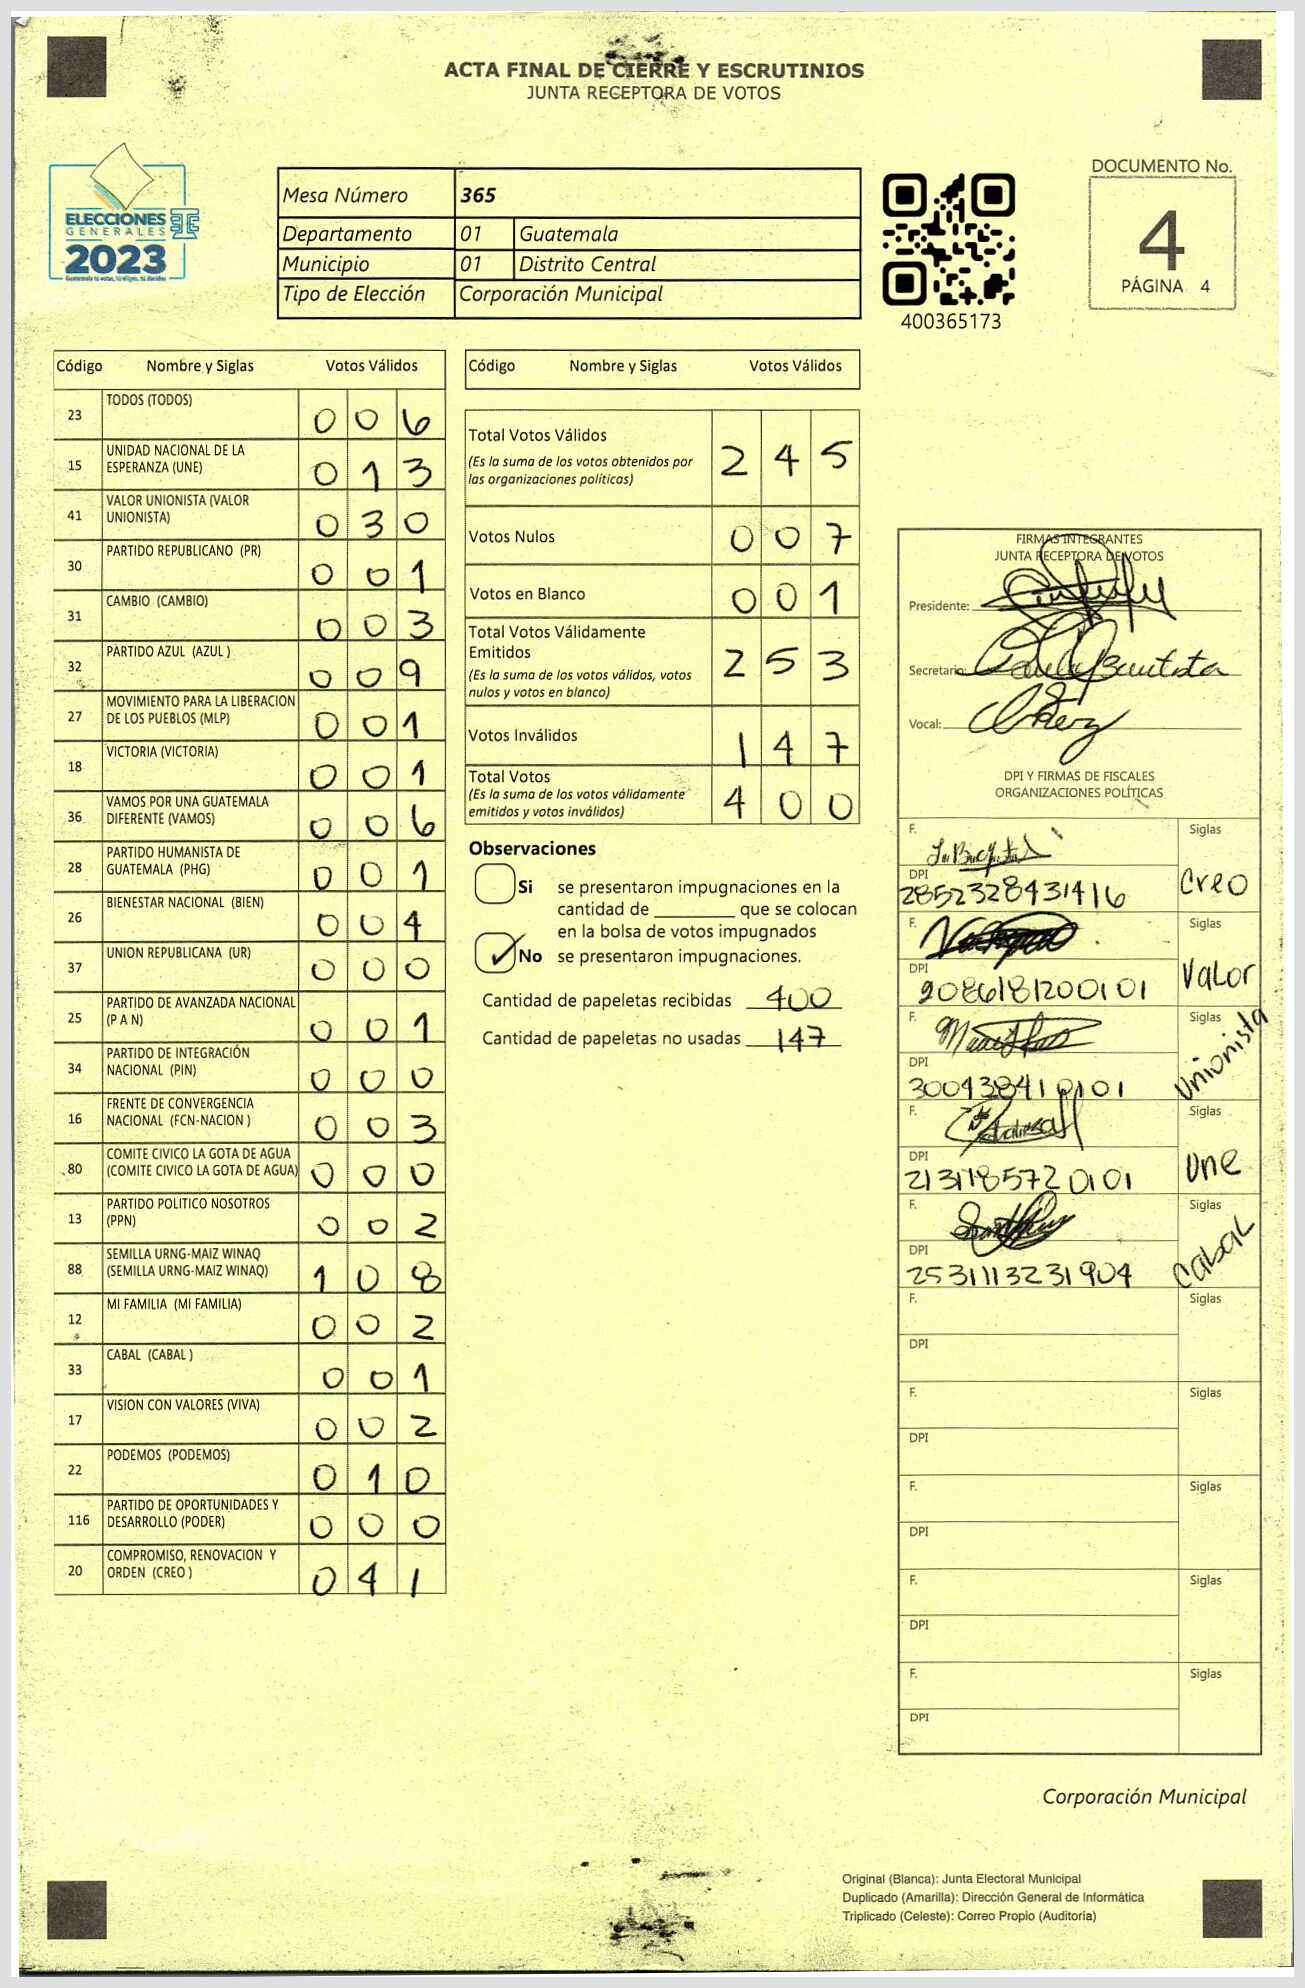 ACTA FINAL DE CIERRE Y ESCRUTINIOS
JUNTA RECEPTORA DE VOTOS
ELECCIONES
GENERALES
2023
Mesa Número 365
Departamento 01 Guatemala
Municipio 01 Distrito Central
Tipo de Elección Corporación Municipal
400365173
DOCUMENTO No.
4
PÁGINA 4
Código Nombre y Siglas Votos Válidos
23 TODOS (TODOS) 0 0 6
15 UNIDAD NACIONAL DE LA
ESPERANZA (UNE) 0 1 3
41 VALOR UNIONISTA (VALOR
UNIONISTA) 0 3 0
30 PARTIDO REPUBLICANO (PR) 0 0 1
31 CAMBIO (CAMBIO) 0 0 3
32 PARTIDO AZUL (AZUL ) 0 0 9
27 MOVIMIENTO PARA LA LIBERACION
DE LOS PUEBLOS (MLP) 0 0 1
18 VICTORIA (VICTORIA) 0 0 1
36 VAMOS POR UNA GUATEMALA
DIFERENTE (VAMOS) 0 0 6
28 PARTIDO HUMANISTA DE
GUATEMALA (PHG) 0 0 1
26 BIENESTAR NACIONAL (BIEN) 0 0 4
37 UNION REPUBLICANA (UR) 0 0 0
25 PARTIDO DE AVANZADA NACIONAL
(P A N) 0 0 1
34 PARTIDO DE INTEGRACIÓN
NACIONAL (PIN) 0 0 0
16 FRENTE DE CONVERGENCIA
NACIONAL (FCN-NACION ) 0 0 3
80 COMITE CIVICO LA GOTA DE AGUA
(COMITE CIVICO LA GOTA DE AGUA) 0 0 0
13 PARTIDO POLITICO NOSOTROS
(PPN) 0 0 2
88 SEMILLA URNG-MAIZ WINAQ
(SEMILLA URNG-MAIZ WINAQ) 1 0 8
12 MI FAMILIA (MI FAMILIA) 0 0 2
33 CABAL (CABAL ) 0 0 1
17 VISION CON VALORES (VIVA) 0 0 2
22 PODEMOS (PODEMOS) 0 1 0
116 PARTIDO DE OPORTUNIDADES Y
DESARROLLO (PODER) 0 0 0
20 COMPROMISO, RENOVACION Y
ORDEN (CREO ) 0 4 1
Código Nombre y Siglas Votos Válidos
Total Votos Válidos 2 4 5
(Es la suma de los votos obtenidos por
las organizaciones políticas)
Votos Nulos 0 0 7
Votos en Blanco 0 0 1
Total Votos Válidamente
Emitidos 2 5 3
(Es la suma de los votos válidos, votos
nulos y votos en blanco)
Votos Inválidos 1 4 7
Total Votos 4 0 0
(Es la suma de los votos válidamente
emitidos y votos inválidos)
Observaciones
Si se presentaron impugnaciones en la
cantidad de ________ que se colocan
en la bolsa de votos impugnados
No se presentaron impugnaciones.
Cantidad de papeletas recibidas 400
Cantidad de papeletas no usadas 147
FIRMAS INTEGRANTES
JUNTA RECEPTORA DE VOTOS
Presidente:
Secretario: Bautista
Vocal:
DPI Y FIRMAS DE FISCALES
ORGANIZACIONES POLÍTICAS
F. Siglas
DPI Creo
2852328431416
F. Siglas
DPI Valor
2086181200101
F. Siglas
Unionista
300438410101
F. Siglas
DPI Une
2131185720101
F. Siglas
DPI Cabal
2531113231904
F. Siglas
DPI
F. Siglas
DPI
F. Siglas
DPI
F. Siglas
DPI
F. Siglas
DPI
Corporación Municipal
Original (Blanca): Junta Electoral Municipal
Duplicado (Amarilla): Dirección General de Informática
Triplicado (Celeste): Correo Propio (Auditoría)